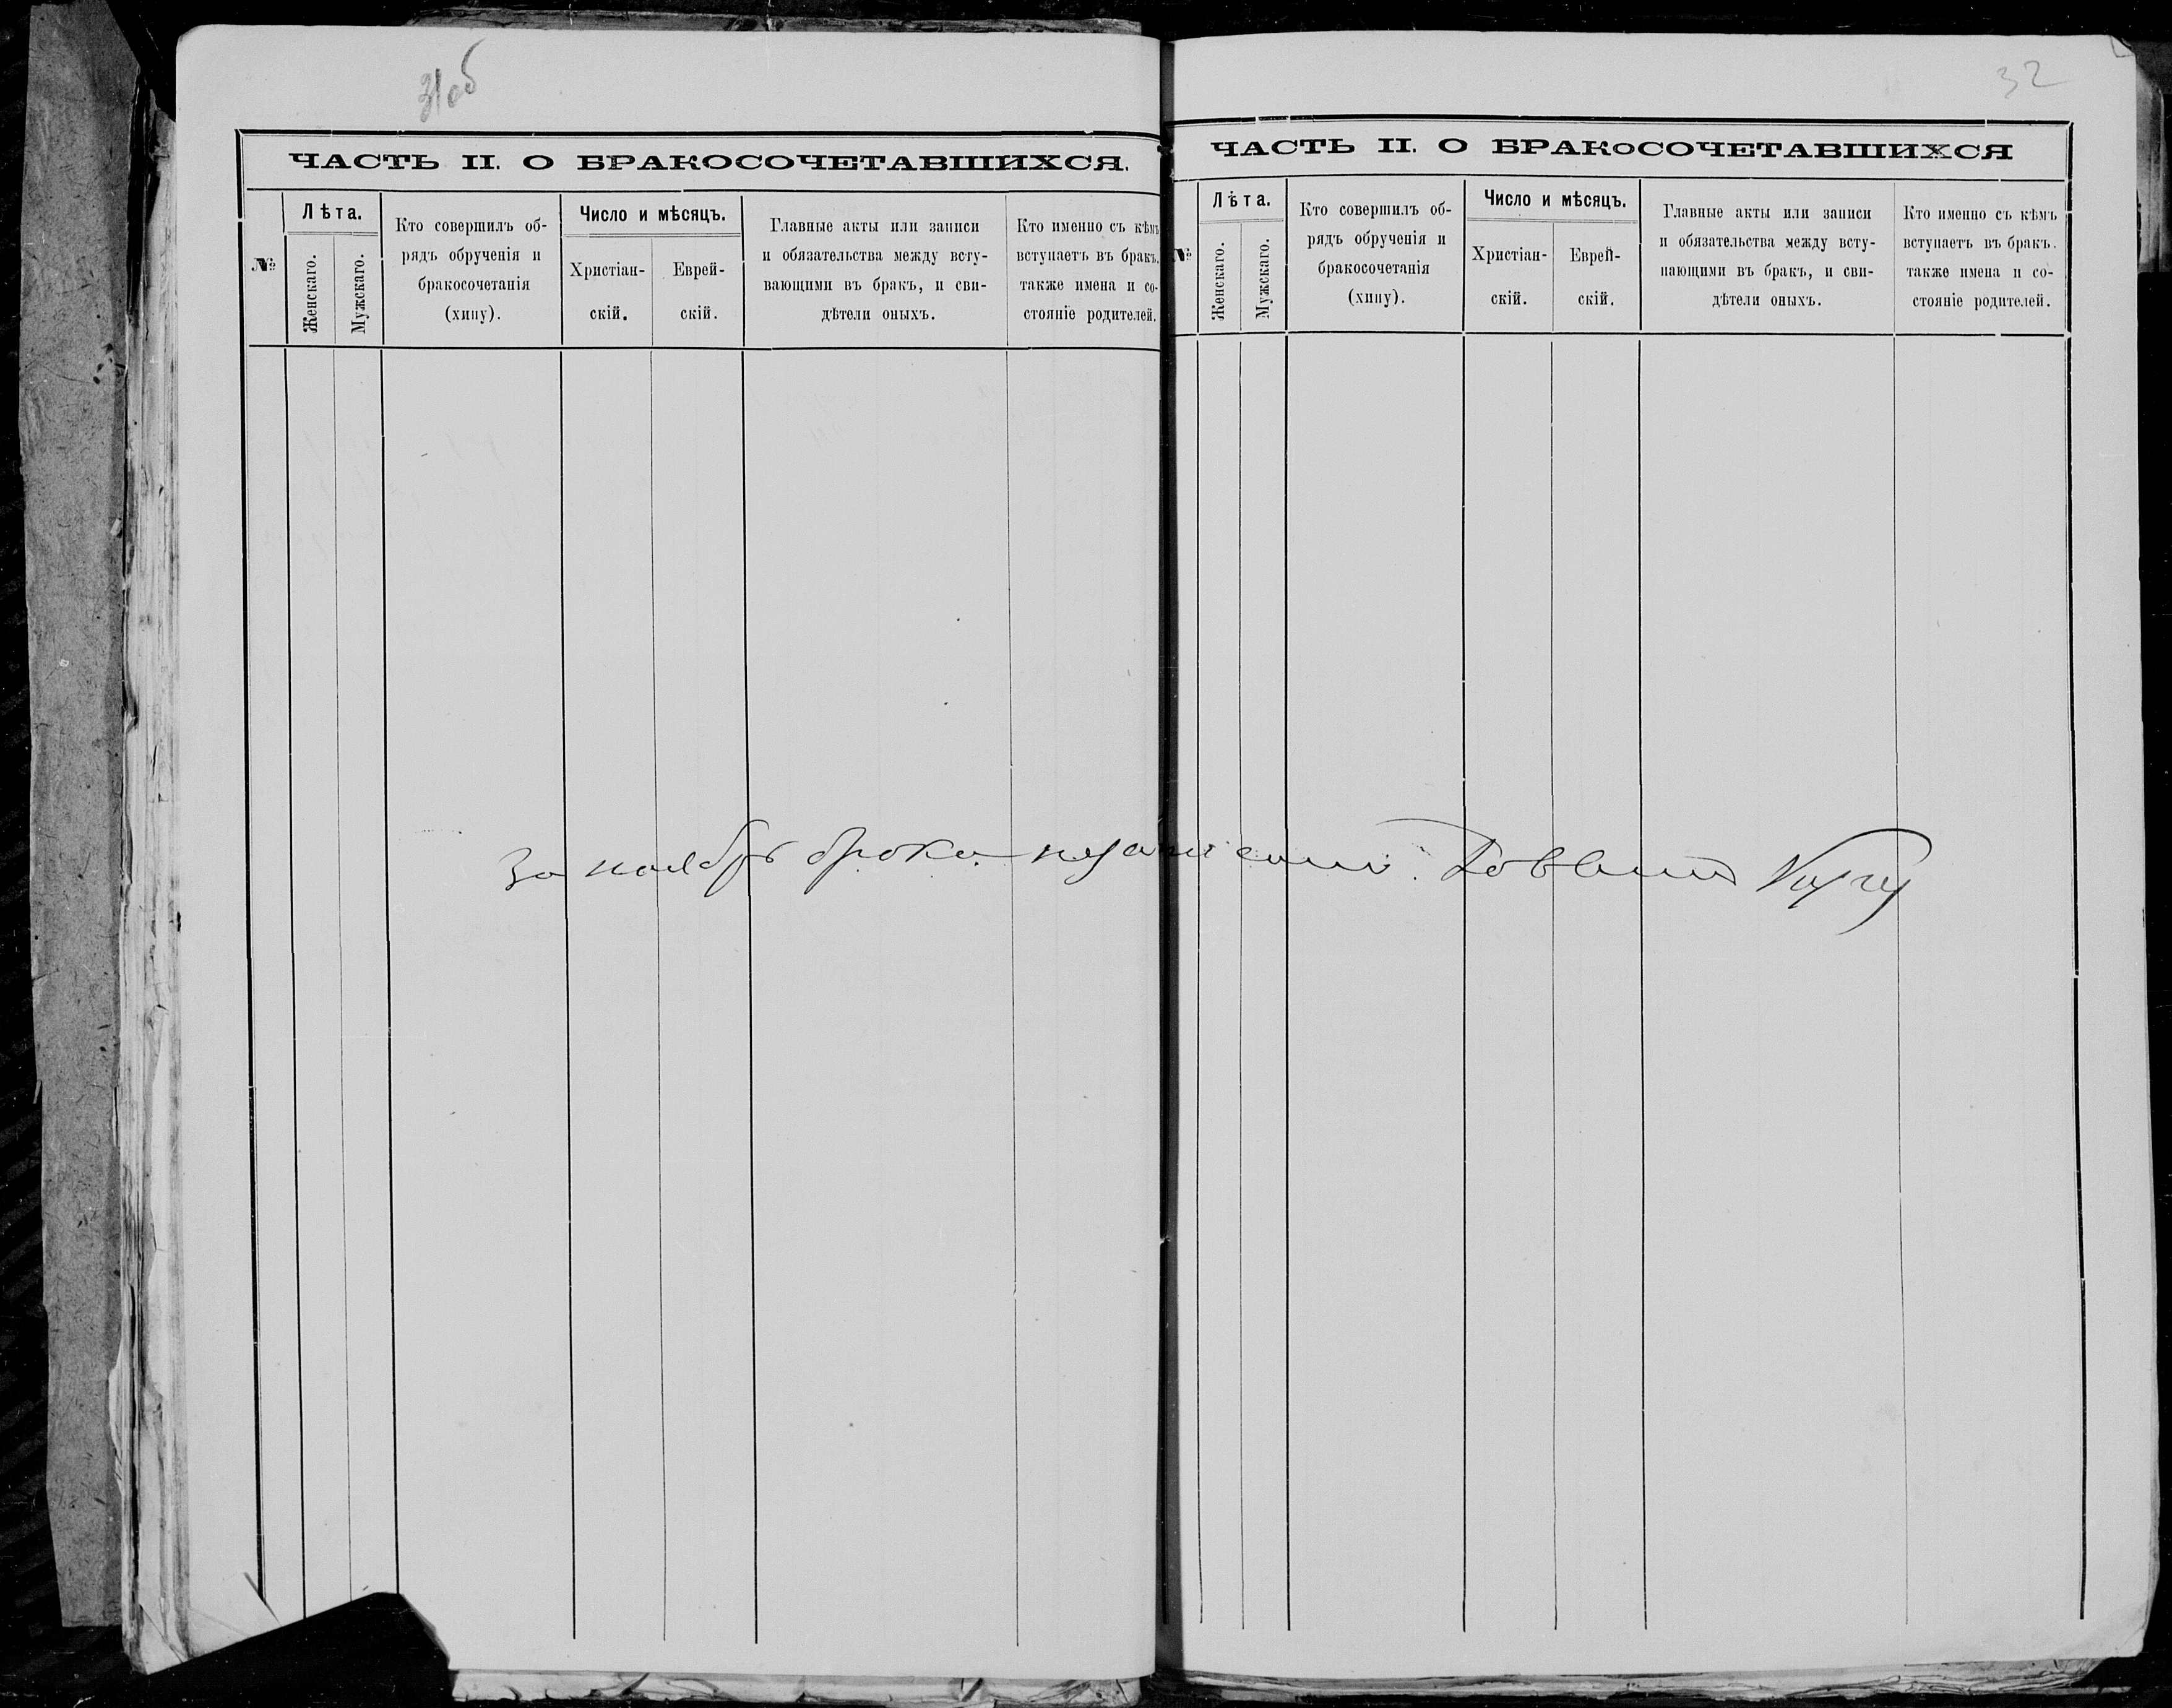 31об
ЧАСТЬ II. О БРАКОСОЧЕТАВШИХСЯ.
№
Лѣта.
Женскаго.
Мужскаго.
Кто совершилъ об-
рядъ обрученія и
бракосочетанія
(хипу).
Число и мѣсяцъ.
Христіан-
скій.
Еврей-
скій.
Главные акты или записи
и обязательства между всту-
пающими въ бракъ, и сви-
дѣтели оныхъ.
Кто именно съ кѣмъ
вступаетъ въ бракъ.
также имена и со-
стояніе родителей.
32
ЧАСТЬ II. О БРАКОСОЧЕТАВШИХСЯ
№
Лѣта.
Женскаго.
Мужскаго.
Кто совершилъ об-
рядъ обрученія и
бракосочетанія
(хипу).
Число и мѣсяцъ.
Христіан-
скій.
Еврей-
скій.
Главные акты или записи
и обязательства между всту-
пающими въ бракъ, и сви-
дѣтели оныхъ.
Кто именно съ кѣмъ
вступаетъ въ бракъ.
также имена и со-
стояніе родителей.
За ноябрь брака